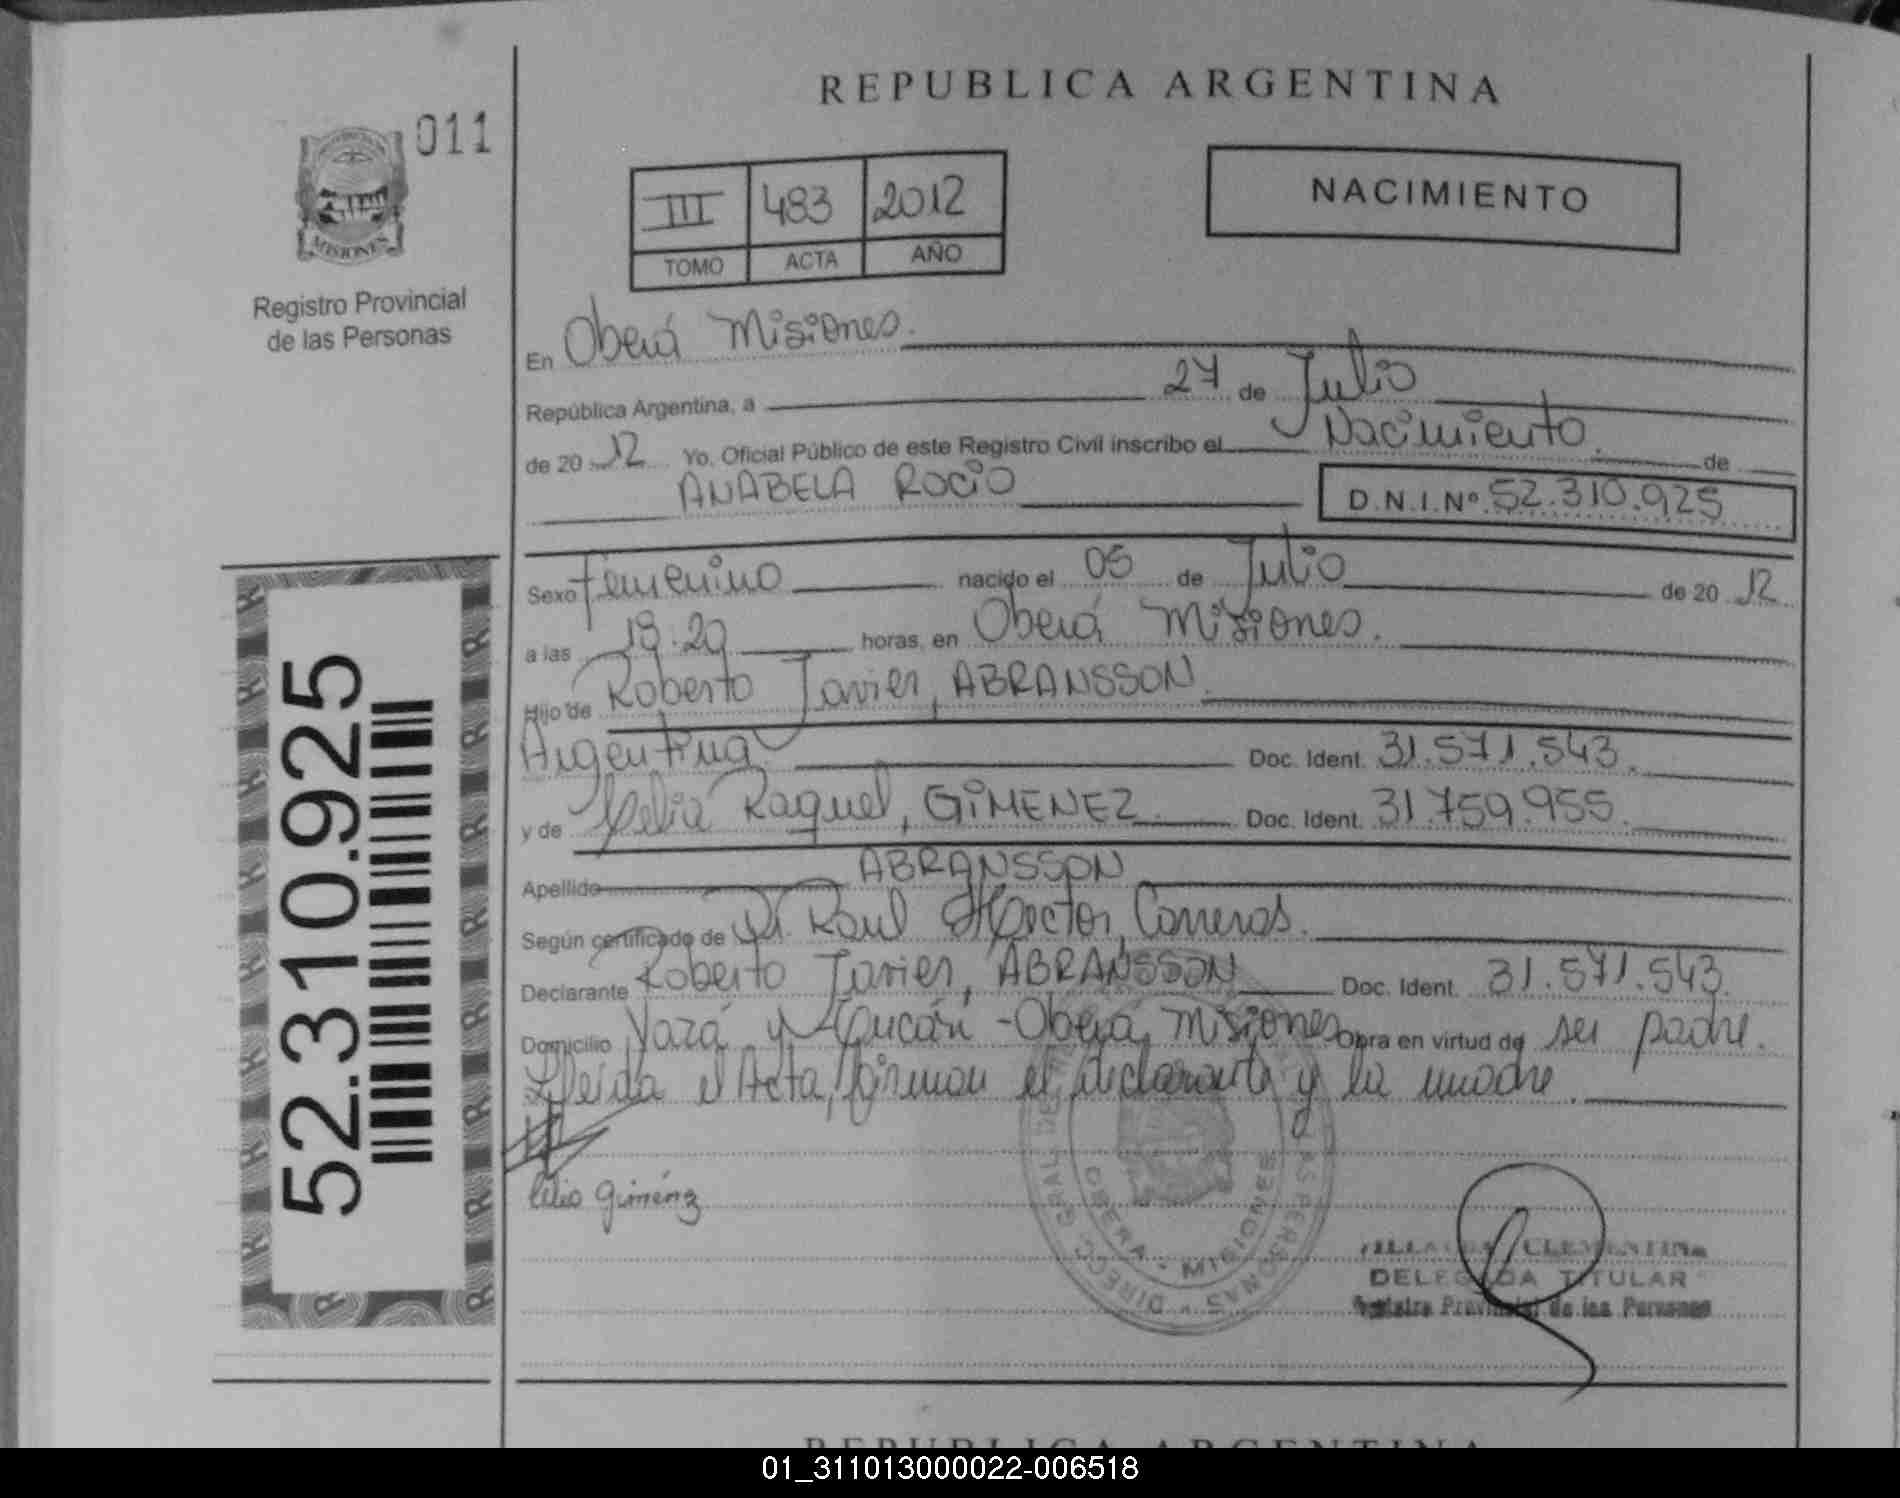 REPUBLICA ARGENTINA
011
NACIMIENTO
III 483 2012
TOMO ACTA AÑO
MISIONES
Registro Provincial
de las Personas
En Oberá Misiones.
República Argentina, a 27 de Julio
de 20 12 Yo, Oficial Público de este Registro Civil inscribo el Nacimiento de
ANABELA ROCIO D.N.I.Nº 52.310.925
Sexo Femenino nacido el 05 de Julio de 20 12
a las 19.20 horas, en Oberá Misiones.
Hijo de Roberto Javier, ABRANSSON.
Argentina Doc. Ident. 31.571.543.
y de Celia Raquel, GIMENEZ Doc. Ident. 31.759.955.
Apellido ABRANSSON
Según certificado de Dr. Raul Hector, Carreras.
Declarante Roberto Javier, ABRANSSON Doc. Ident. 31.571.543.
Domicilio Yazá y - Oberá, Misiones Obra en virtud de ser padre.
Lleida el Acta, firman el declarante y la madre.
Celia Giménez
52.310.925
OBERA - MISIONES
CLEMENTINA
DELEGADA TITULAR
Registro Provincial de las Personas
REPUBLICA ARGENTINA
01_311013000022-006518